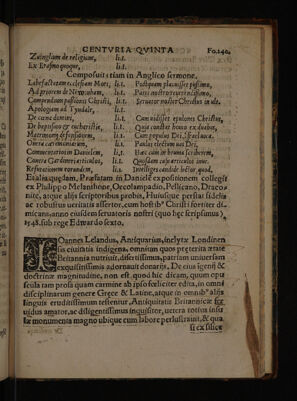 CENTVRIA QVINTA Fo.240.
Zuinglium de religium, li.1.
Ex Erasmo quoque, li.1.
Composuit etiam in Anglico sermone.
Labefactatam ecclesiam Mori, li.1. Postquam placuisset piissimo,
Ad priorem de Newenham, li.1. Patri nostro reuerendissimo,
Compendium passionis Christi, li.1. Seruator noster Christus in ult.
Apologiam ad Tyndale, li.1.
De cœne domini, li.1. Cum uidisset epulones Christus,
De baptismo & eucharistia, li.1. Quia constat homo ex duobus,
Matrimonij defensionem, li.1. Cum populus Dei, Israel
Contra cæremoniarum, li.1. Paulus electum uas Dei.
Commentarium in Danielem, li.1.
Contra Gardineri articulos, li.1. Quosdam cum articulos
Refutationem eorundem, li.1. Intelligas candide lector, quod,
Et alia quædam, Præfatam in Danielē expositionem collegit
ex Philippo Melanthone, Oecolampadio, Pellicano, Draco-
nite, atque alijs scriptoribus probis,
ac robustus ueritatis assertor, cum hosti Christi fortiter di-
micans, anno eiusdem seruatoris nostri (quo hęc scripsimus)
1548. sub rege Edwardo sexto.
IOannes Lelandus, Antiquarius, inclytæ Londinen
sis ciuitatis indigena, omnium quos præterita ætate
Britannia nutriuit, disertissimus, patriam uniuersam
exquisitissimis adornauit donarijs. De eius ígenij &
doctrinæ magnitudine, non est quod hic dicam, quum opu
scula tam prosa quam carmine ab ipso fœliciter edita, in omni
disciplinarum genere Græce & Latine, atque in omnibꝰ alijs
linguis eruditissimum testentur, Antiquitatis Britannicæ fer
uidus amator, ac diligentissimus inquisitor, uetera totius insu
læ monumenta magno ubique cum labore perlustrauit, & qua
si ex silice